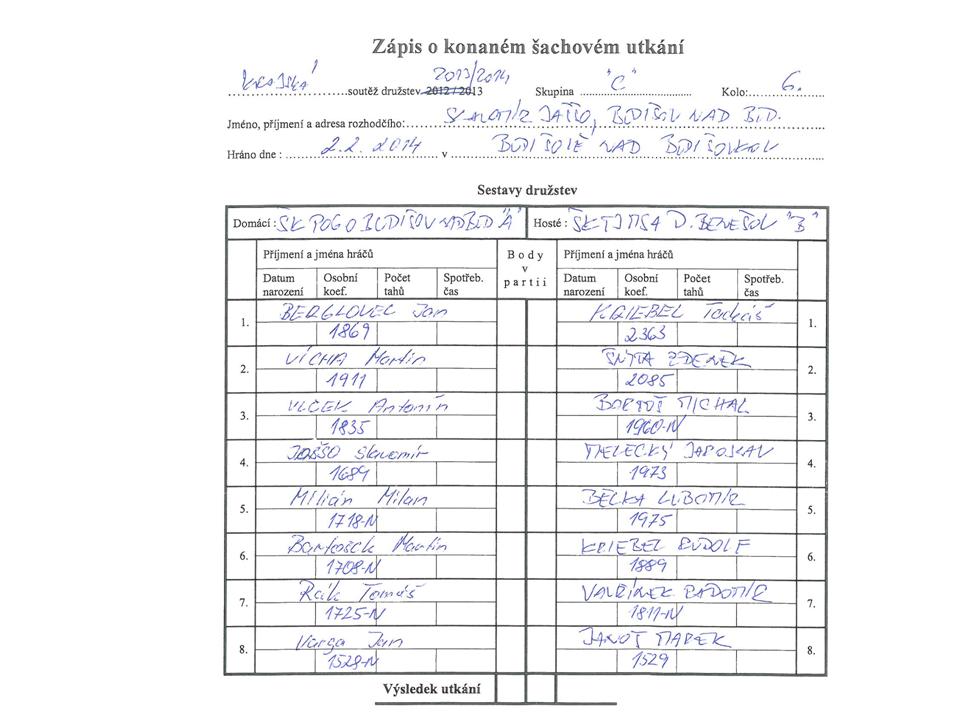 Zápis o konaném šachovém utkání
Krajská soutěž družstev 2012 / 2013 2013/2014 Skupina "C" Kolo: 6.
Jméno, příjmení a adresa rozhodčího: SLAVOMÍR JAŠŠO, BUDIŠOV NAD BUD.
Hráno dne : 2.2. 2014 v BUDIŠOVĚ NAD BUDIŠOVKOU
Sestavy družstev
Domácí : ŠK POGO BUDIŠOV NAD BUD "A" Hosté : ŠK TJ MSA D. BENEŠOV "B"
Příjmení a jména hráčů Body v partii Příjmení a jména hráčů
Datum narození Osobní koef. Počet tahů Spotřeb. čas Datum narození Osobní koef. Počet tahů Spotřeb. čas
1. BERGLOVEC Jan KRIEBEL Tadeáš 1.
1869 2363
2. VÍCHA Martin ZDENĚK 2.
1911 2085
3. VLČEK Antonín BARTOŠ MICHAL 3.
1835 1960-N
4. JAŠŠO Slavomír MELECKÝ JAROSLAV 4.
1684 1973
5. Milián Milan BĚLKA LUBOMÍR 5.
1718-N 1975
6. Martin KRIEBEL RUDOLF 6.
1708-N 1889
7. Rák Tomáš VAVŘÍNEK RADOMÍR 7.
1725-N 1811-N
8. Varga Jan JANOT MAREK 8.
1528-N 1529
Výsledek utkání